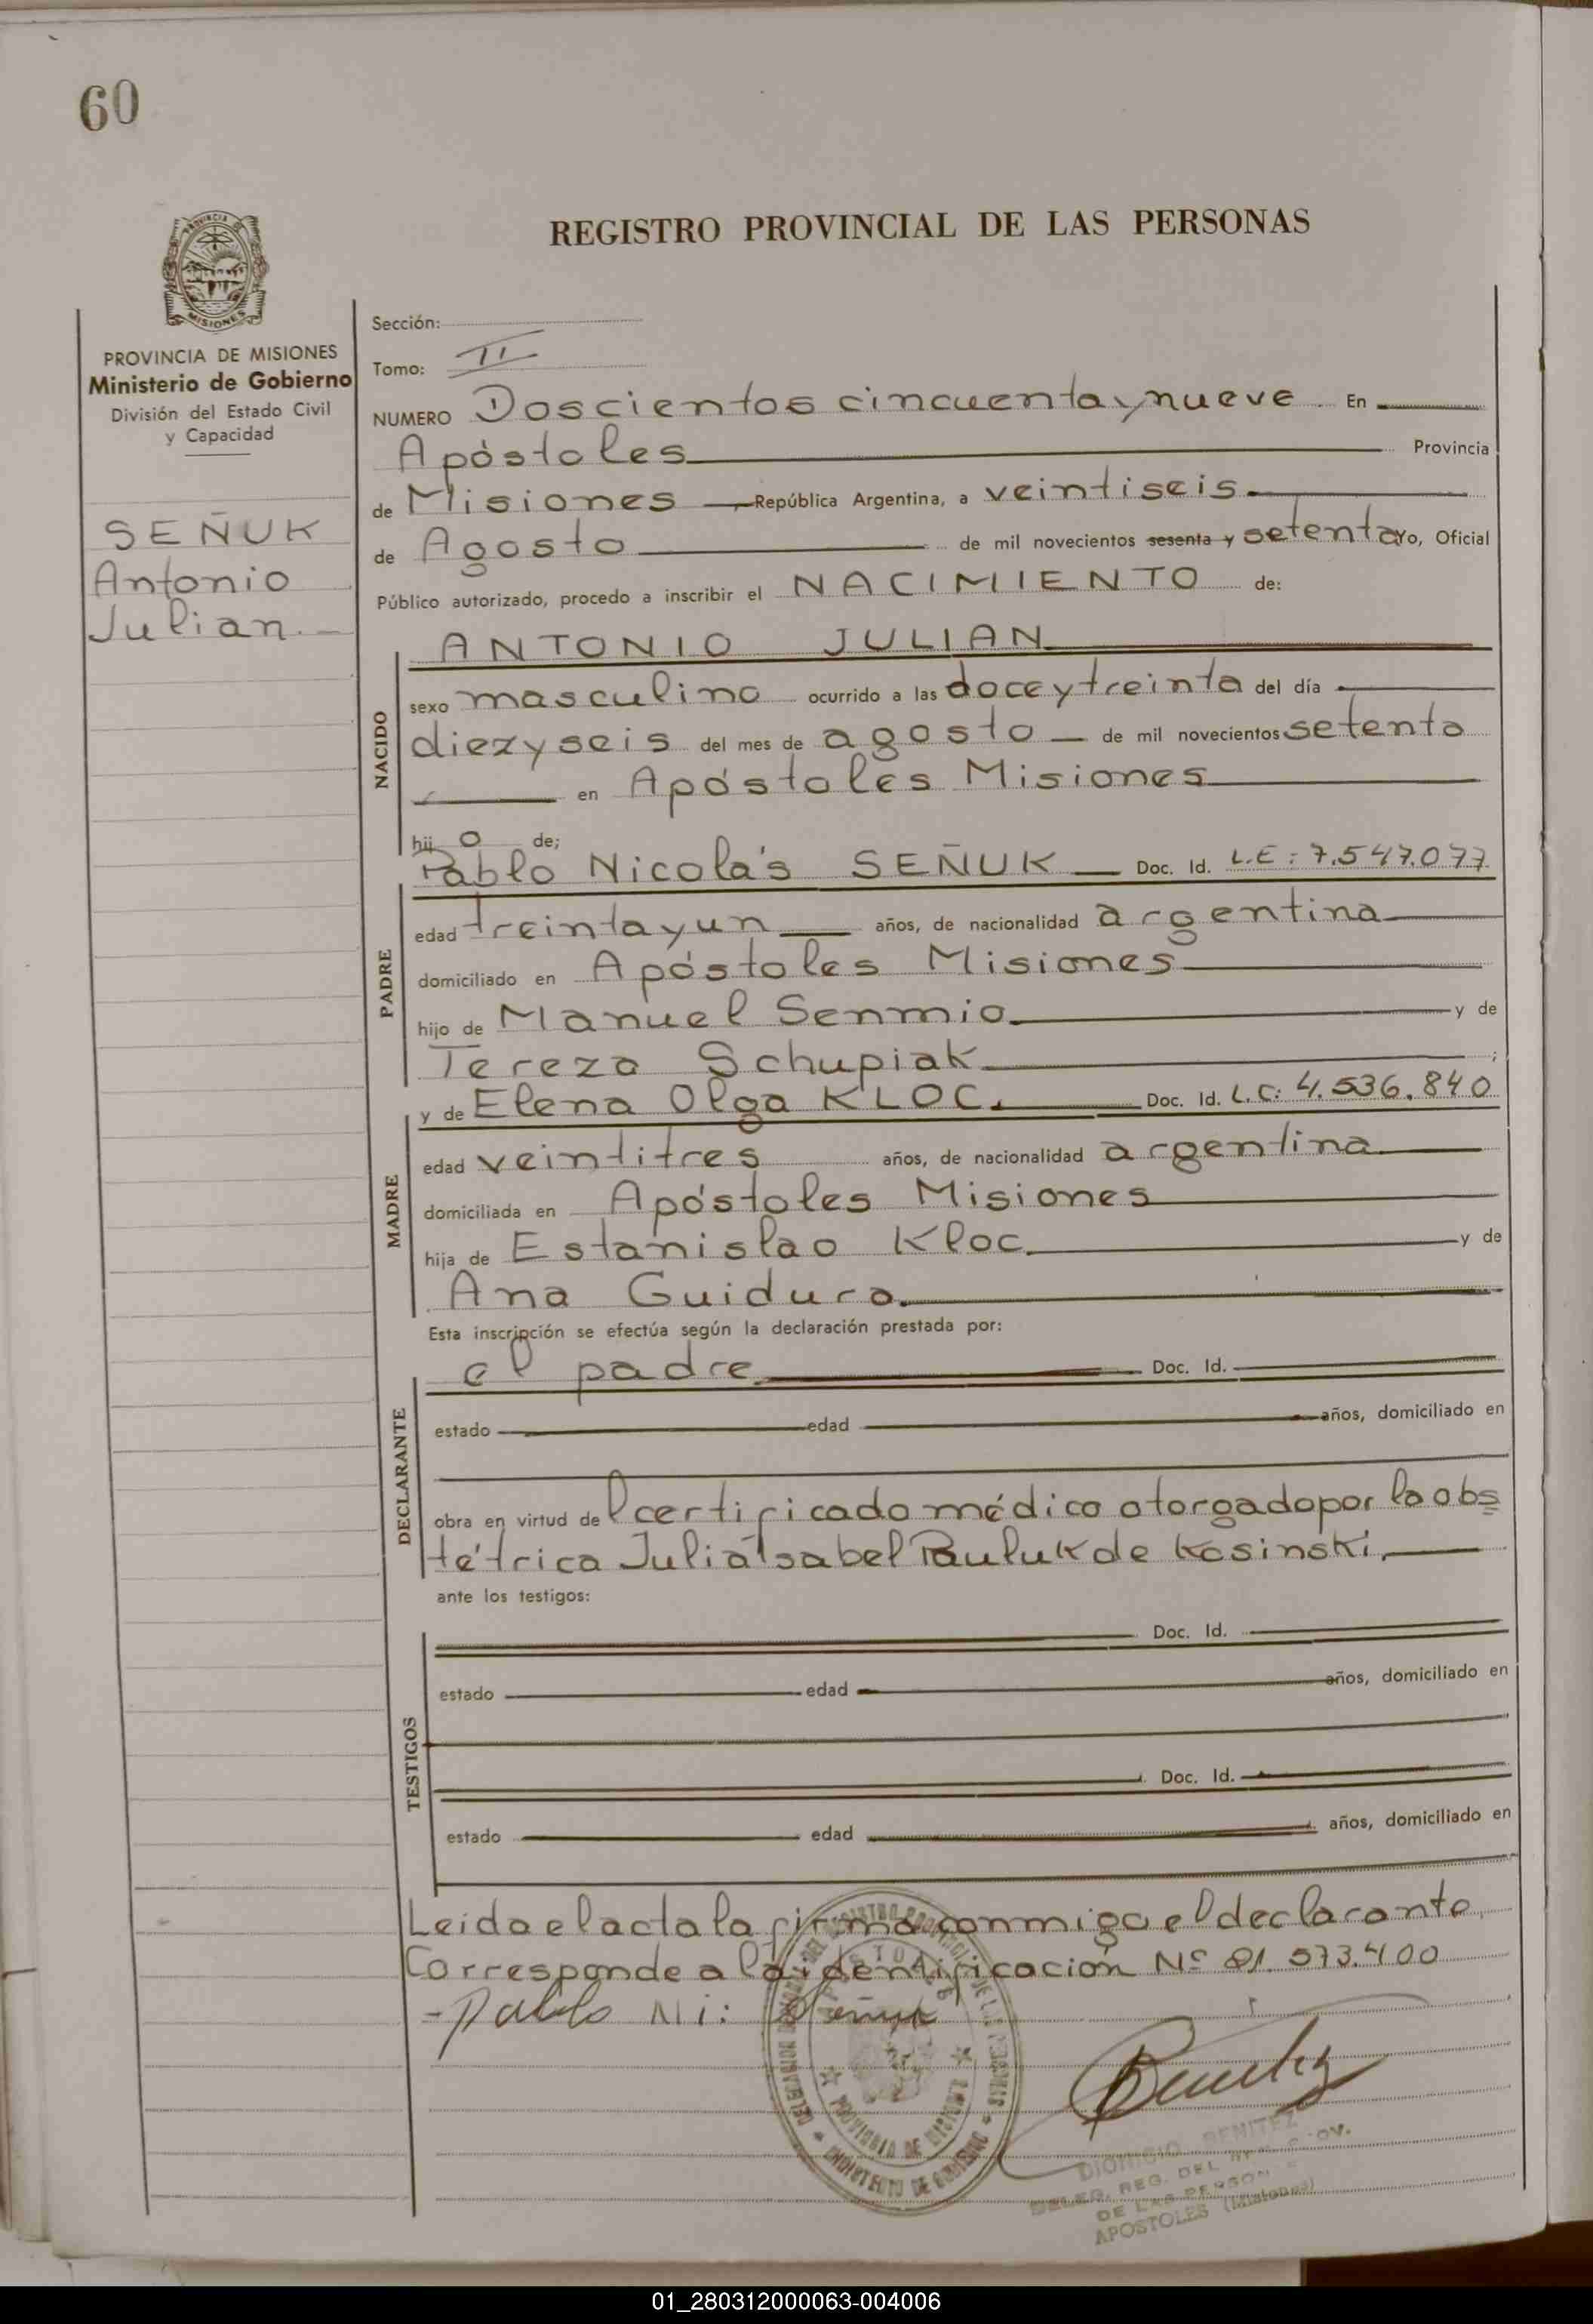 60
REGISTRO PROVINCIAL DE LAS PERSONAS
PROVINCIA
MISIONES
PROVINCIA DE MISIONES
Ministerio de Gobierno
División del Estado Civil
y Capacidad
SEÑUK
Antonio
Julian.-
Sección:
Tomo: II
NUMERO Doscientos cincuenta y nueve En
Apóstoles Provincia
de Misiones República Argentina, a veintiseis
de Agosto de mil novecientos sesenta y setenta Yo, Oficial
Público autorizado, procedo a inscribir el NACIMIENTO de:
ANTONIO JULIAN
NACIDO
sexo masculino ocurrido a las doce y treinta del día
diez y seis del mes de agosto de mil novecientos setenta
en Apóstoles Misiones
hijo de;
Pablo Nicolás SEÑUK Doc. Id. L.E: 7.547.077
PADRE
edad treinta y un años, de nacionalidad argentina
domiciliado en Apóstoles Misiones
hijo de Manuel Senmio y de
Tereza Schupiak ;
y de Elena Olga KLOC. Doc. Id. L.C: 4.536.840
MADRE
edad veintitres años, de nacionalidad argentina
domiciliada en Apóstoles Misiones
hija de Estanislao Kloc y de
Ana Guidura.
Esta inscripción se efectúa según la declaración prestada por:
el padre Doc. Id.
DECLARANTE
estado edad años, domiciliado en
obra en virtud del certificado médico otorgado por la obs
tétrica Julia Isabel Pauluk de Kosinski.
ante los testigos:
TESTIGOS
Doc. Id.
estado edad años, domiciliado en
Doc. Id.
estado edad años, domiciliado en
Leida el acta la firma conmigo el declarante.
Corresponde a la identificación Nº 21.573.400
-Pablo Ni: Señuk
Benitez
DIONICIO BENITEZ
DELEG. REG. DEL PROV.
DE LAS PERSON
APOSTOLES (Misiones)
PROVINCIA DE MISIONES
01_280312000063-004006